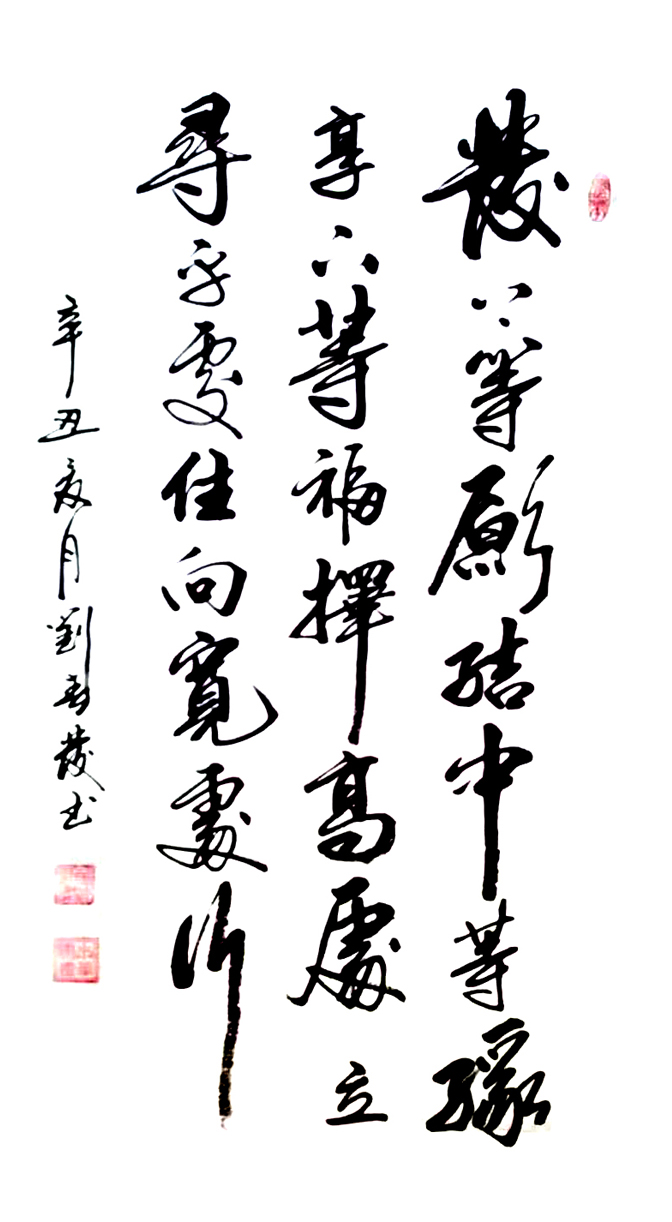 發上等願結中等緣
享下等福擇高處立
尋平處住向寬處行
辛丑月劉發书